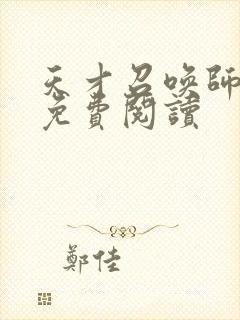 天才召喚師
免費閱讀
鄭佳